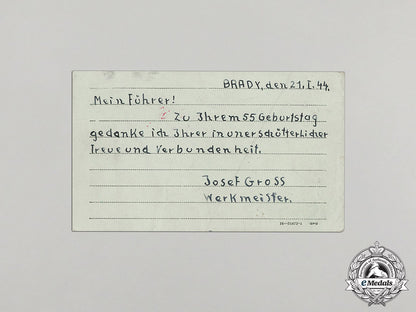 BRADY, den 21. I. 44.
Mein Führer!
Zu Ihrem 55 Geburtstag
gedanke ich Ihrer in unerschütterlicher
Treue und Verbundenheit.
Josef Gross
Werkmeister.
eMedals